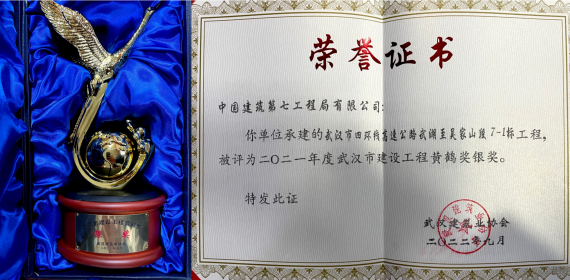 荣誉证书
中国建筑第七工程局有限公司:
你单位承建的武汉市四环线高速公路武湖至吴家山段7-1标工程,
被评为二〇二一年度武汉市建设工程黄鹤奖银奖。
特发此证
武汉建筑业协会
二〇二二年九月